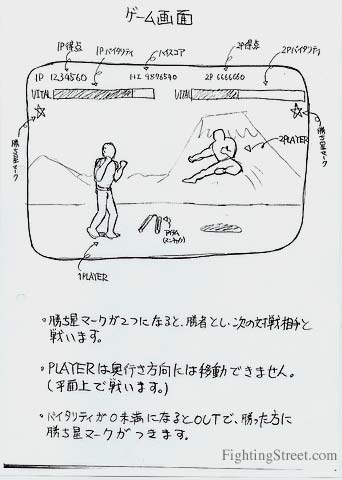 ゲーム画面
1P得点
1Pバイタリティ
ハイスコア
2P得点
2Pバイタリティ
1P 1234560 HI 9876540 2P 6666660
VITAL VITAL
勝ち星マーク
勝ち星マーク
2PLAYER
アイテム
(ヌンチャク)
1PLAYER
○勝ち星マークが2つになると、勝者とし、次の対戦相手と
戦います。
○PLAYERは奥行き方向には移動できません。
(平面上で戦います。)
○バイタリティが0未満になるとOUTで、勝った方に
勝ち星マークがつきます。
FightingStreet.com